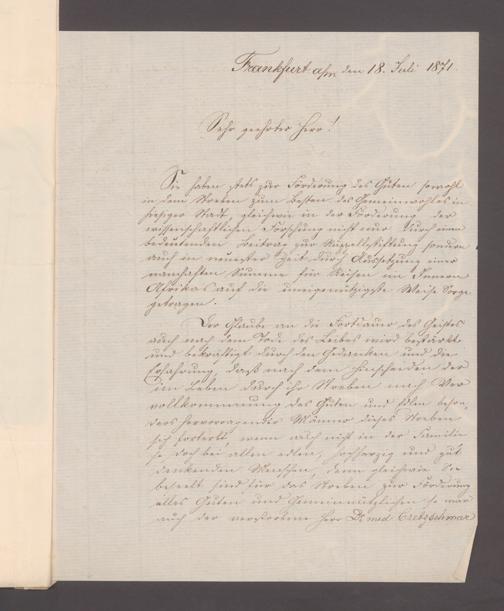 Frankfurt a/m den 18. Juli 1871.
Sehr geehrter Herr!
Sie haben stets zur Förderung des Guten sowohl
in dem Streben zum Besten des Gemeinwohles in
hiesiger Stadt, gleichwie in der Förderung der
wissenschaftlichen Forschung nicht nur durch einen
bedeutenden Beitrag zur Rüppellstiftung sondern
auch in neuester Zeit durch Aussetzung einer
namhaften Summe für Reisen im Innern
Afrikas auf die uneigennützigste Weise Sorge
getragen.
Der Glaube an die Fortdauer des Geistes
auch nach dem Tode des Leibes wird bestärkt
und bekräftigt durch den Gedanken und die
Erfahrung, daß nach dem Hinscheiden der
im Leben durch ihr Streben nach Ver
vollkommnung des Guten und Edlen beson,
ders hervorragender Männer dieses Streben
sich forterbt, wenn auch nicht in der Familie
so doch bei allen edlen, hochherzig und gut
denkenden Menschen, denn gleichwie Sie
beseelt sind für das Streben zur Förderung
alles Guten und Gemeinnützlichen so war
auch der verstorbene Herr Dr med. Cretzschmar